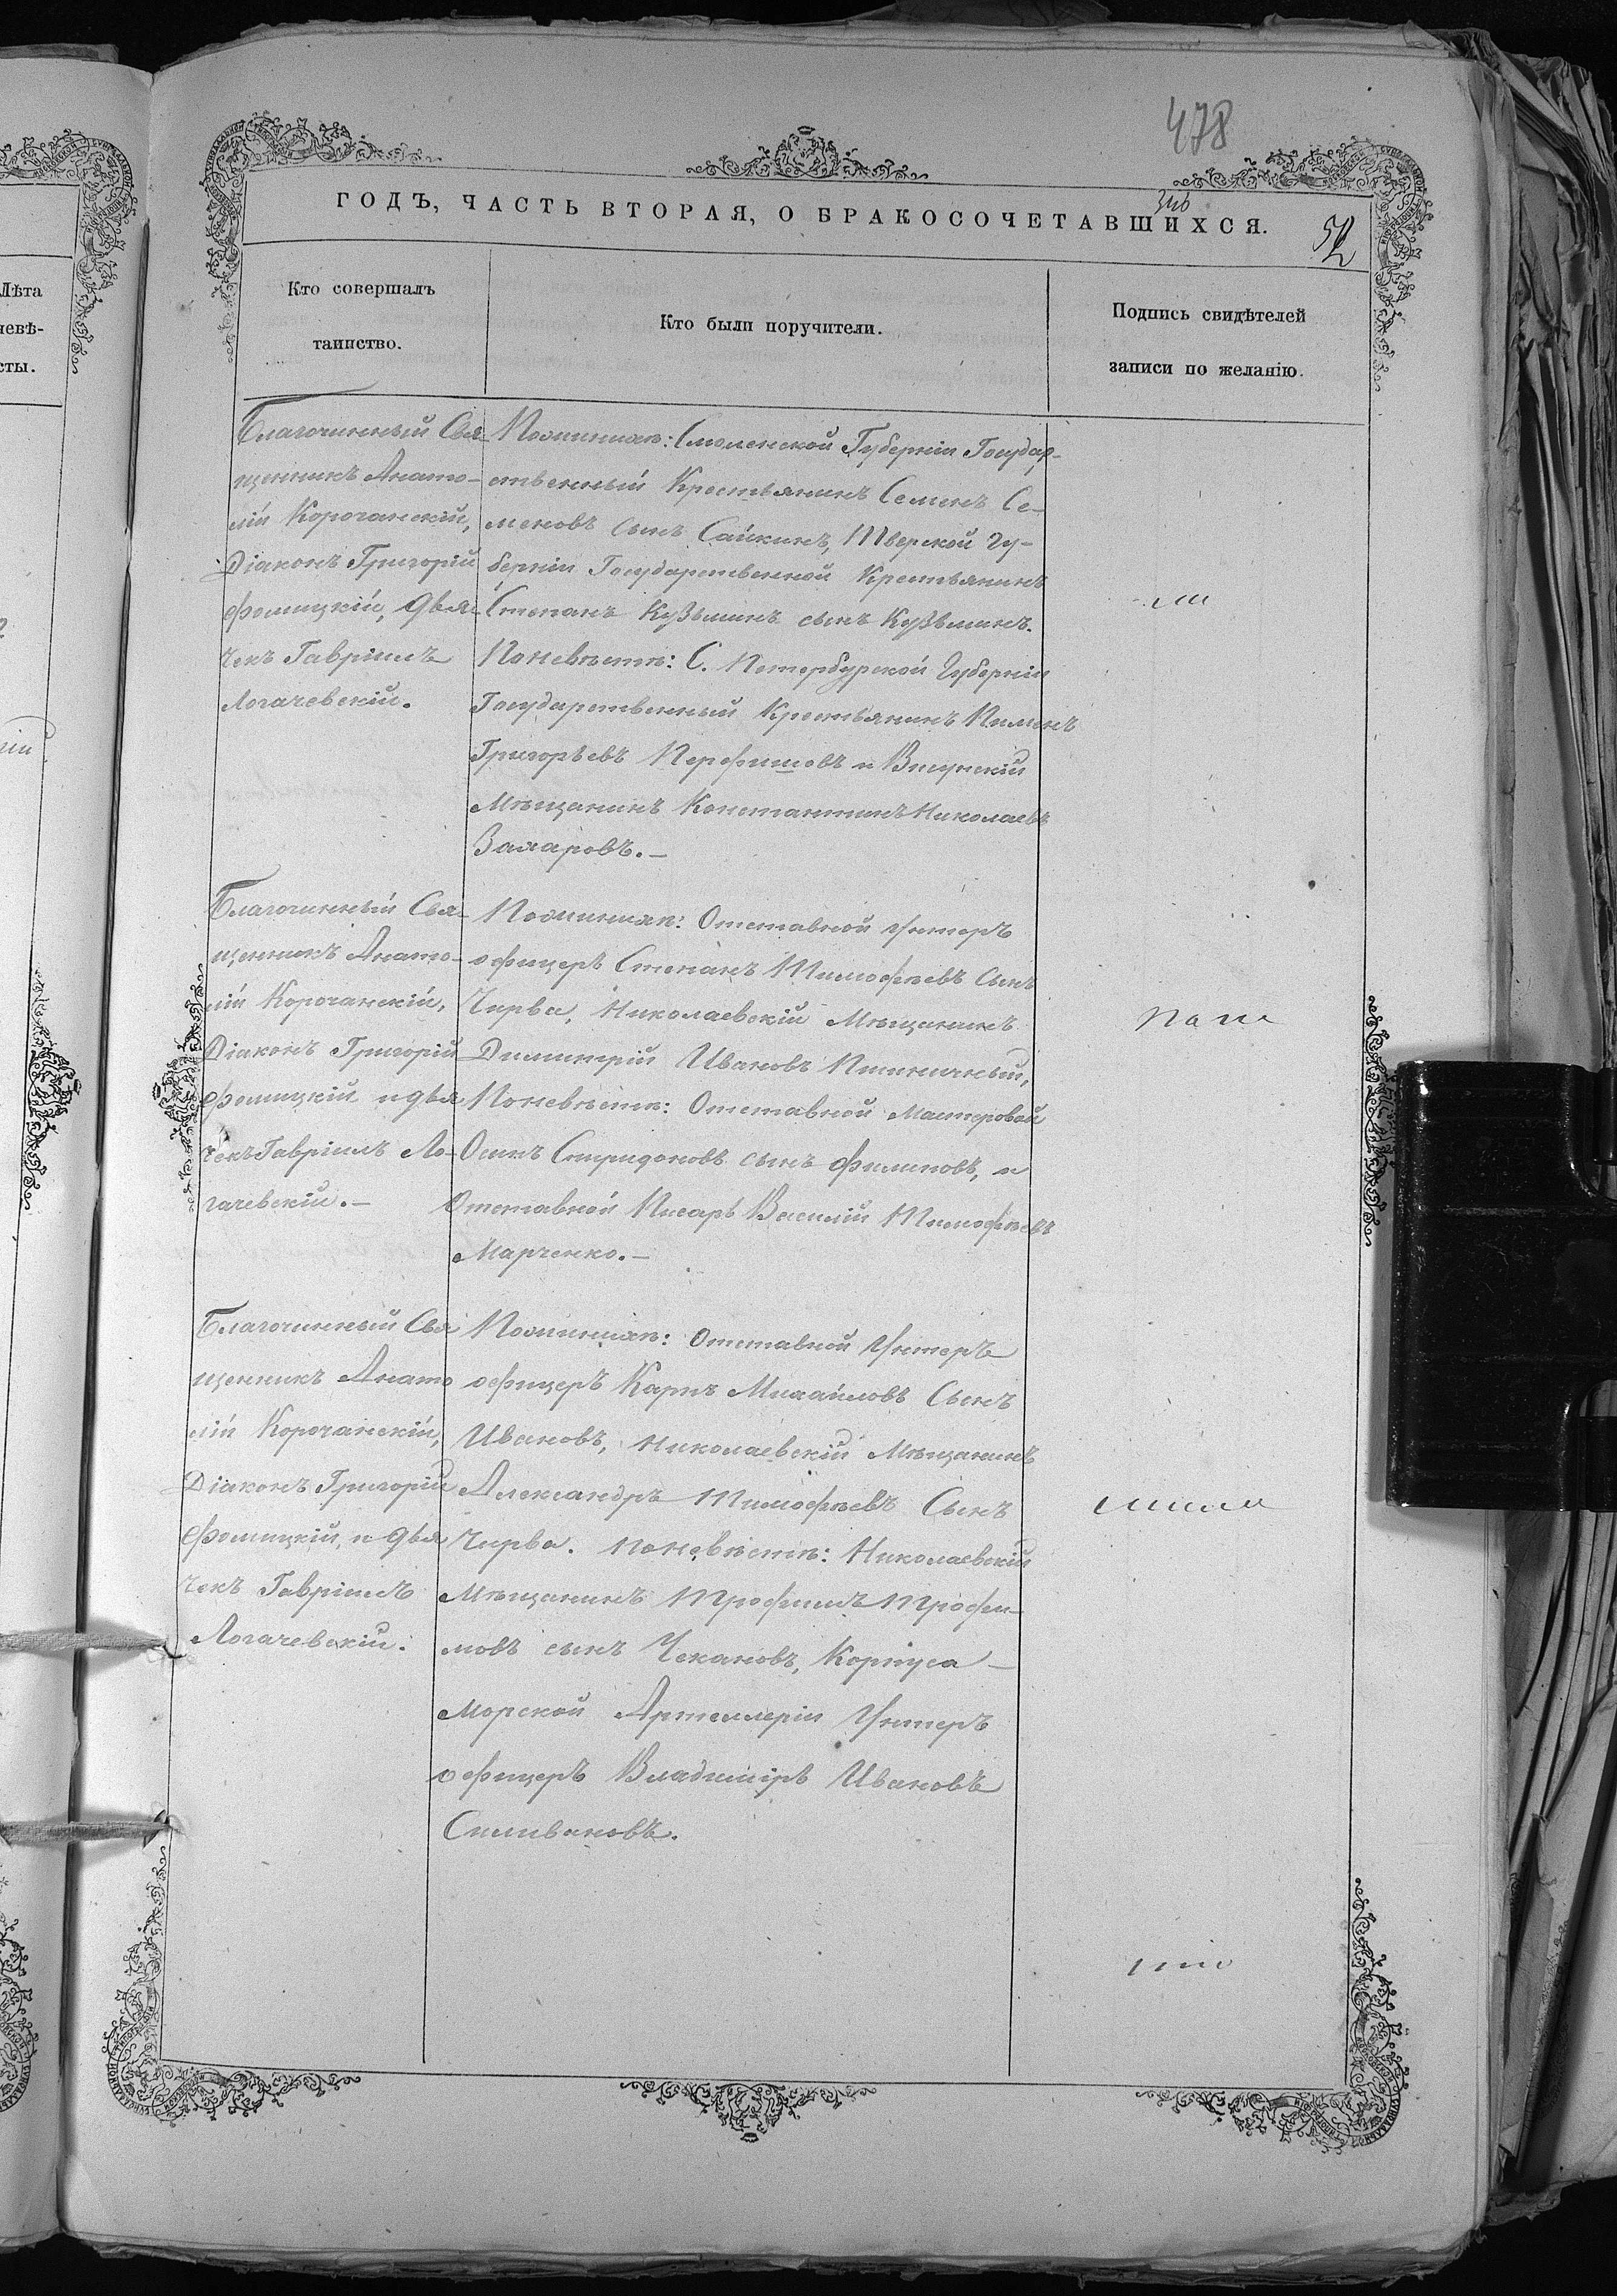 478
346
52
ГОДЪ, ЧАСТЬ ВТОРАЯ, О БРАКОСОЧЕТАВШИХСЯ.
Лѣта
невѣ-
сты.
Кто совершалъ
таинство.
Кто были поручители.
Подпись свидѣтелей
записи по желанію.
Благочинный Свя-
щенникъ Анато-
лій Корочанскій,
Діаконъ Григорій
Фомицкій, дья-
чекъ Гавріилъ
Логачевскій.
Пожинихѣ: Смоленской Губерніи Государ-
ственный Крестьянинъ Семенъ Се-
меновъ сынъ Сайкинъ, Тверской гу-
берніи Государственной Крестьянинъ
Степанъ Кузьминъ сынъ Кузьминъ.
Поневѣстѣ: С. Петербурской Губерніи
Государственный Крестьянинъ Пименъ
Григорьевъ Перфишовъ и
Мѣщанинъ Константинъ Николаевъ
Захаровъ.—
Благочинный Свя-
щенникъ Анато-
лій Корочанскій,
Діаконъ Григорій
Фомицкій и дья
чекъ Гавріилъ Ло-
гачевскій.—
Пожинихѣ: Отставной Унтеръ
офицеръ Степанъ Тимофѣевъ Сынъ
Чирва, Николаевскій Мѣщанинъ
Димитрій Ивановъ Пшеничный,
Поневѣстѣ: Отставной Мастеровой
Осипъ Спиридоновъ сынъ Филиповъ, и
Отставной Писарь Василій Тимофѣевъ
Марченко.—
Благочинный Свя
щенникъ Анато
лій Корочанскій,
Діаконъ Григорій
Фомицкій, и дья
чекъ Гавріилъ
Логачевскій.
Пожинихѣ: Отставной Унтеръ
офицеръ Карпъ Михайловъ Сынъ
Ивановъ, Николаевскій Мѣщанинъ
Александръ Тимофѣевъ Сынъ
Чирва. Поневѣстѣ: Николаевскій
Мѣщанинъ Трофимъ Трофи-
мовъ сынъ Чекановъ, Корпуса
Морской Артиллеріи Унтеръ
офицеръ Владиміръ Ивановъ
Силивановъ.